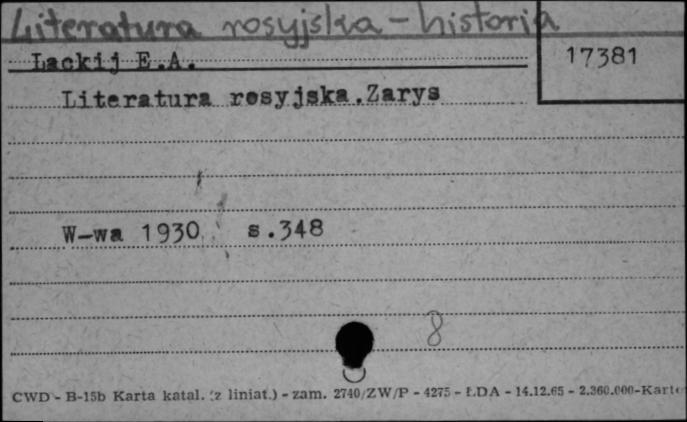 Literatura rosyjska - historia
17381
Lackij E.A.
Literatura rosyjska.Zarys
W-wa 1930 s.348
8
CWD - B-15b Karta katal. (z liniat.) - zam. 2740/ZW/P - 4275 - ŁDA - 14.12.65 - 2.360.000 - Karto